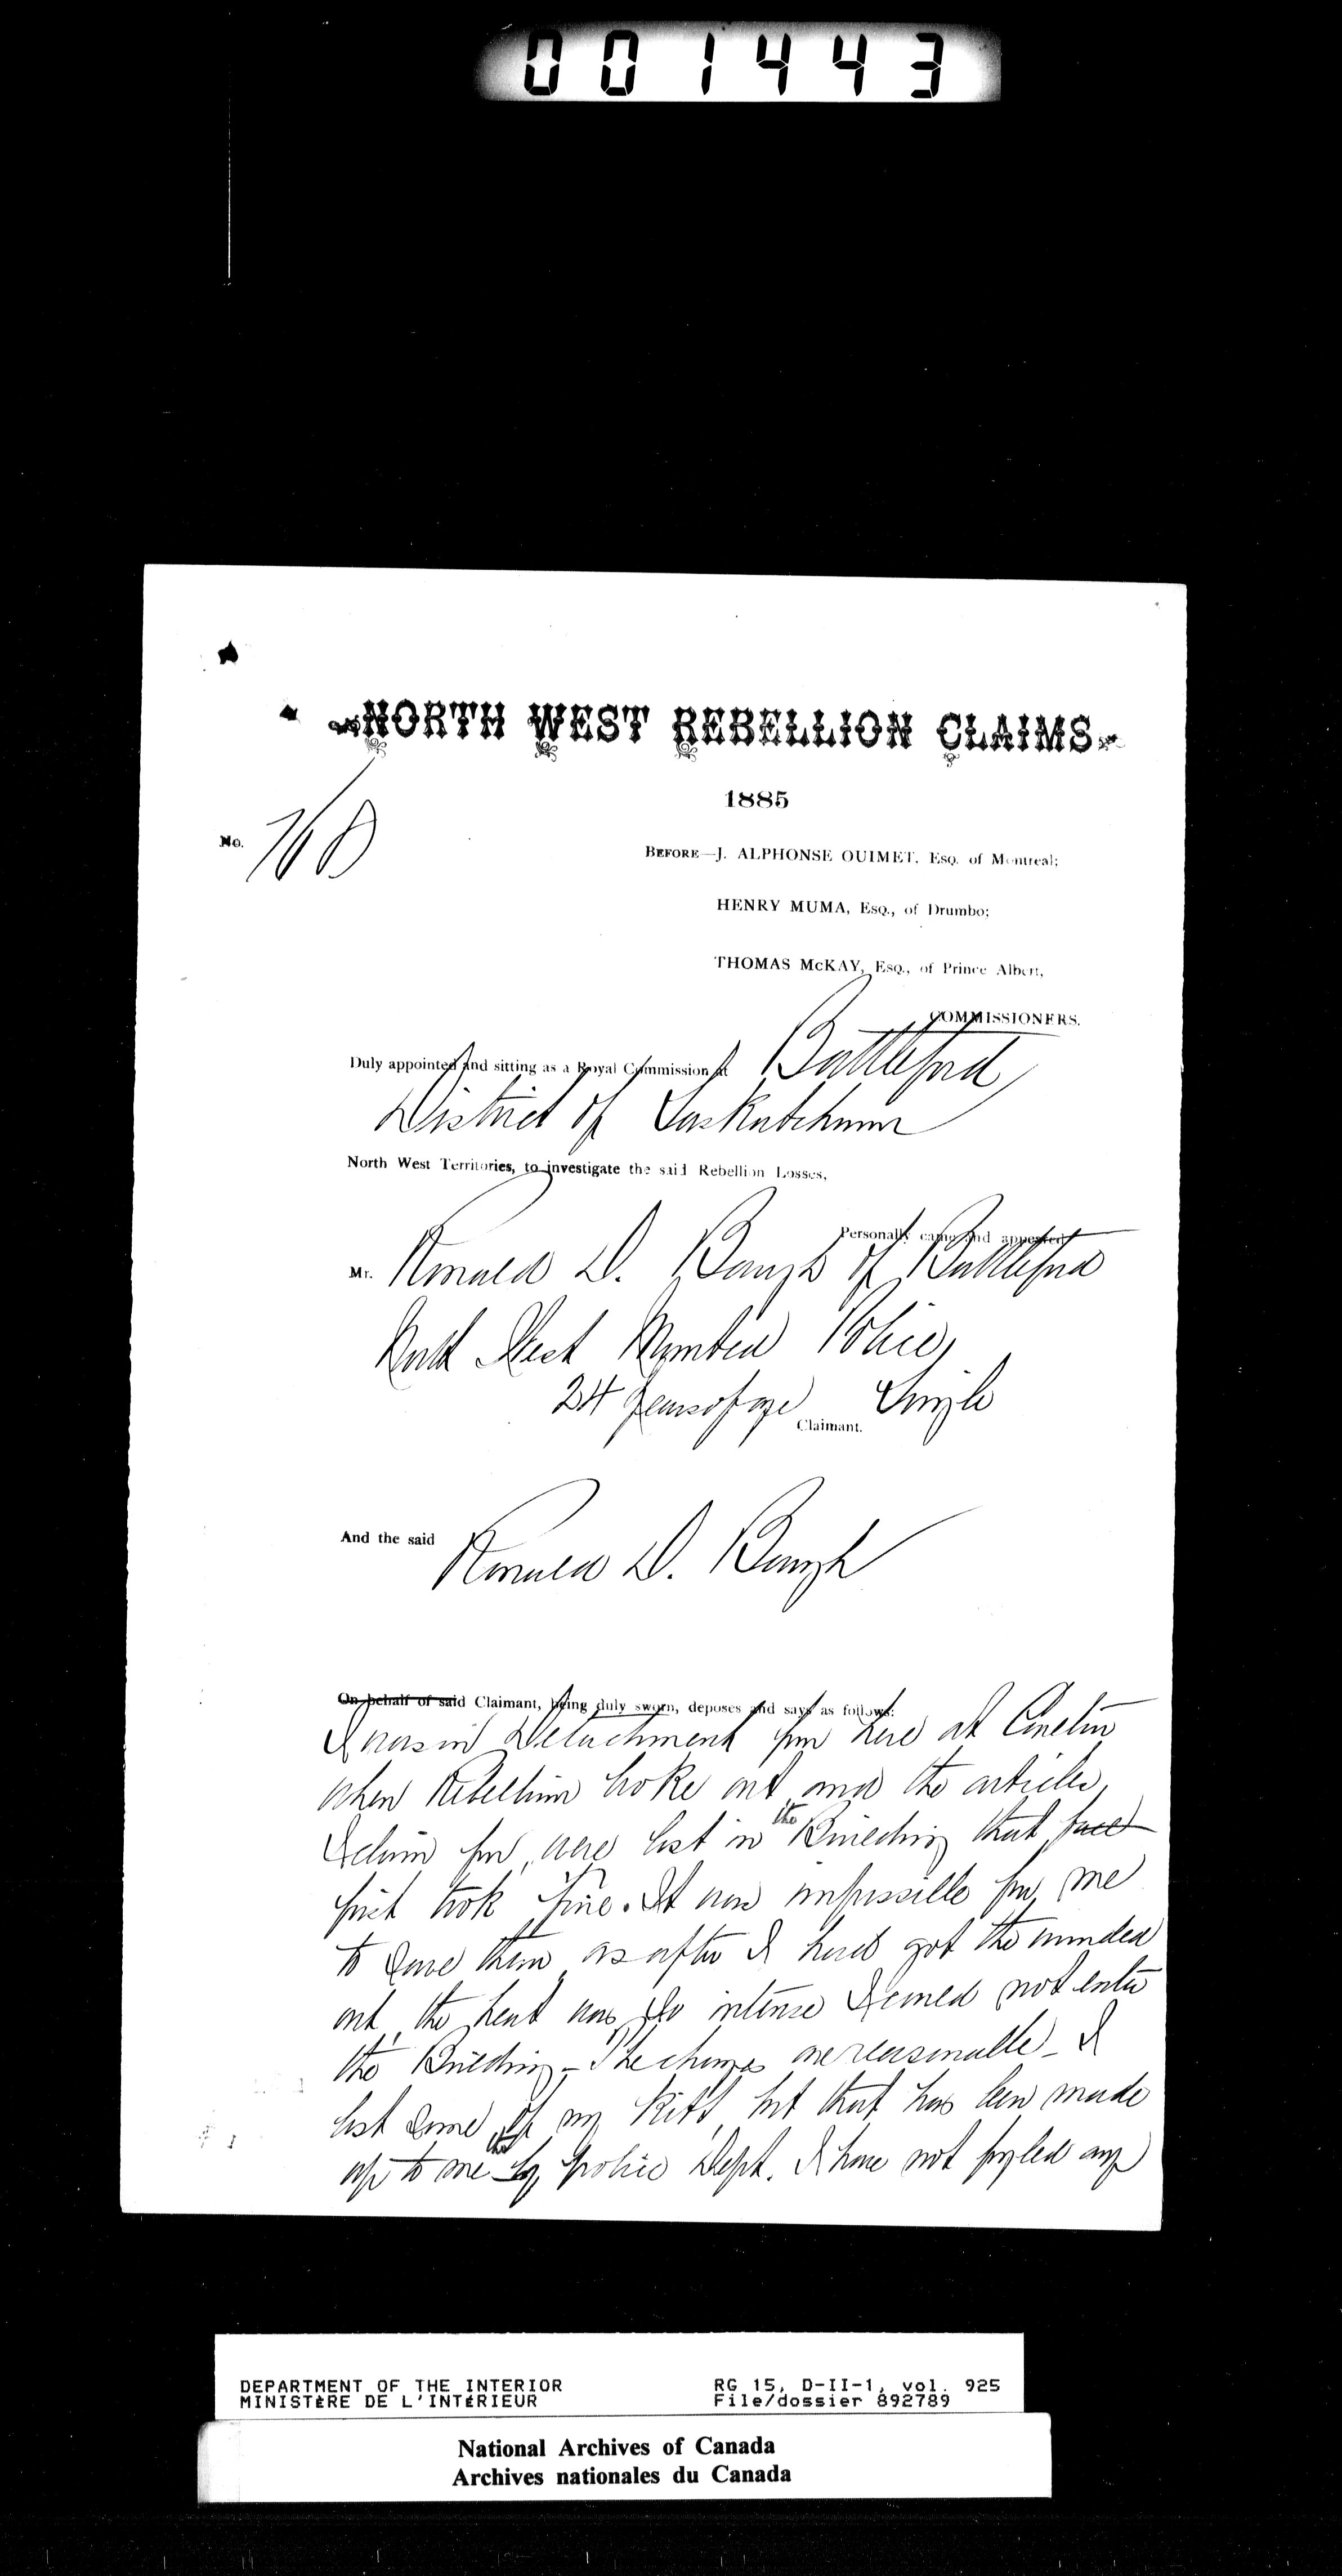 001443
NORTH WEST REBELLION CLAIMS
1885
No. 760
BEFORE—J. ALPHONSE OUIMET, Esq. of Montreal;
HENRY MUMA, Esq., of Drumbo;
THOMAS McKAY, Esq., of Prince Albert,
COMMISSIONERS.
Duly appointed and sitting as a Royal Commission at Battleford
District of Saskatchewan
North West Territories, to investigate the said Rebellion Losses,
Personally came and appeared
Mr. Ronald D. Baugh of Battleford
North West Mounted Police,
24 years of age Single
Claimant.
And the said Ronald D. Baugh
On behalf of said Claimant, being duly sworn, deposes and says as follows:
I was in Detachment from here at Carlton
when Rebellion broke out and the articles
I claim for, were lost in the Building that
first took fire. It was impossible for me
to save them as after I had got the wounded
out, the heat was so intense I could not enter
the Building - The charges are reasonable - I
lost some of my Kitt, but that has been made
up to me by the police Dept. I have not fyled any
DEPARTMENT OF THE INTERIOR
MINISTÈRE DE L'INTÉRIEUR
RG 15, D-II-1, vol. 925
File/dossier 892789
National Archives of Canada
Archives nationales du Canada